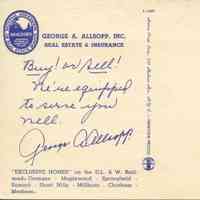 REALTORS
GEORGE A. ALLSOPP, INC.
REAL ESTATE & INSURANCE
Buy! or Sell!
We're equipped
to serve you
well.
George A Allsopp.
"EXCLUSIVE HOMES" on the D.L. & W. Rail-
road: Oranges - Maplewood - Springfield -
Summit - Short Hills - Millburn - Chatham -
Madison.